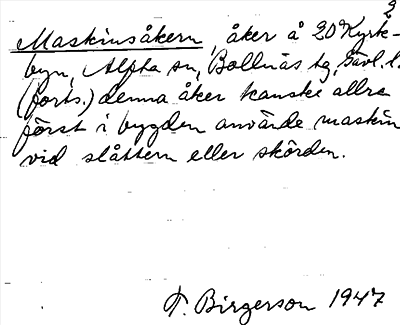 3
Maskinsåkern, åker å 20 Kyrk-
byn, Alfta sn, Bollnäs tg, Gävl. l.
(forts.) denna åker kanske allra
först i bygden använde maskin
vid slåttern eller skörden.
F. Birgerson 1947